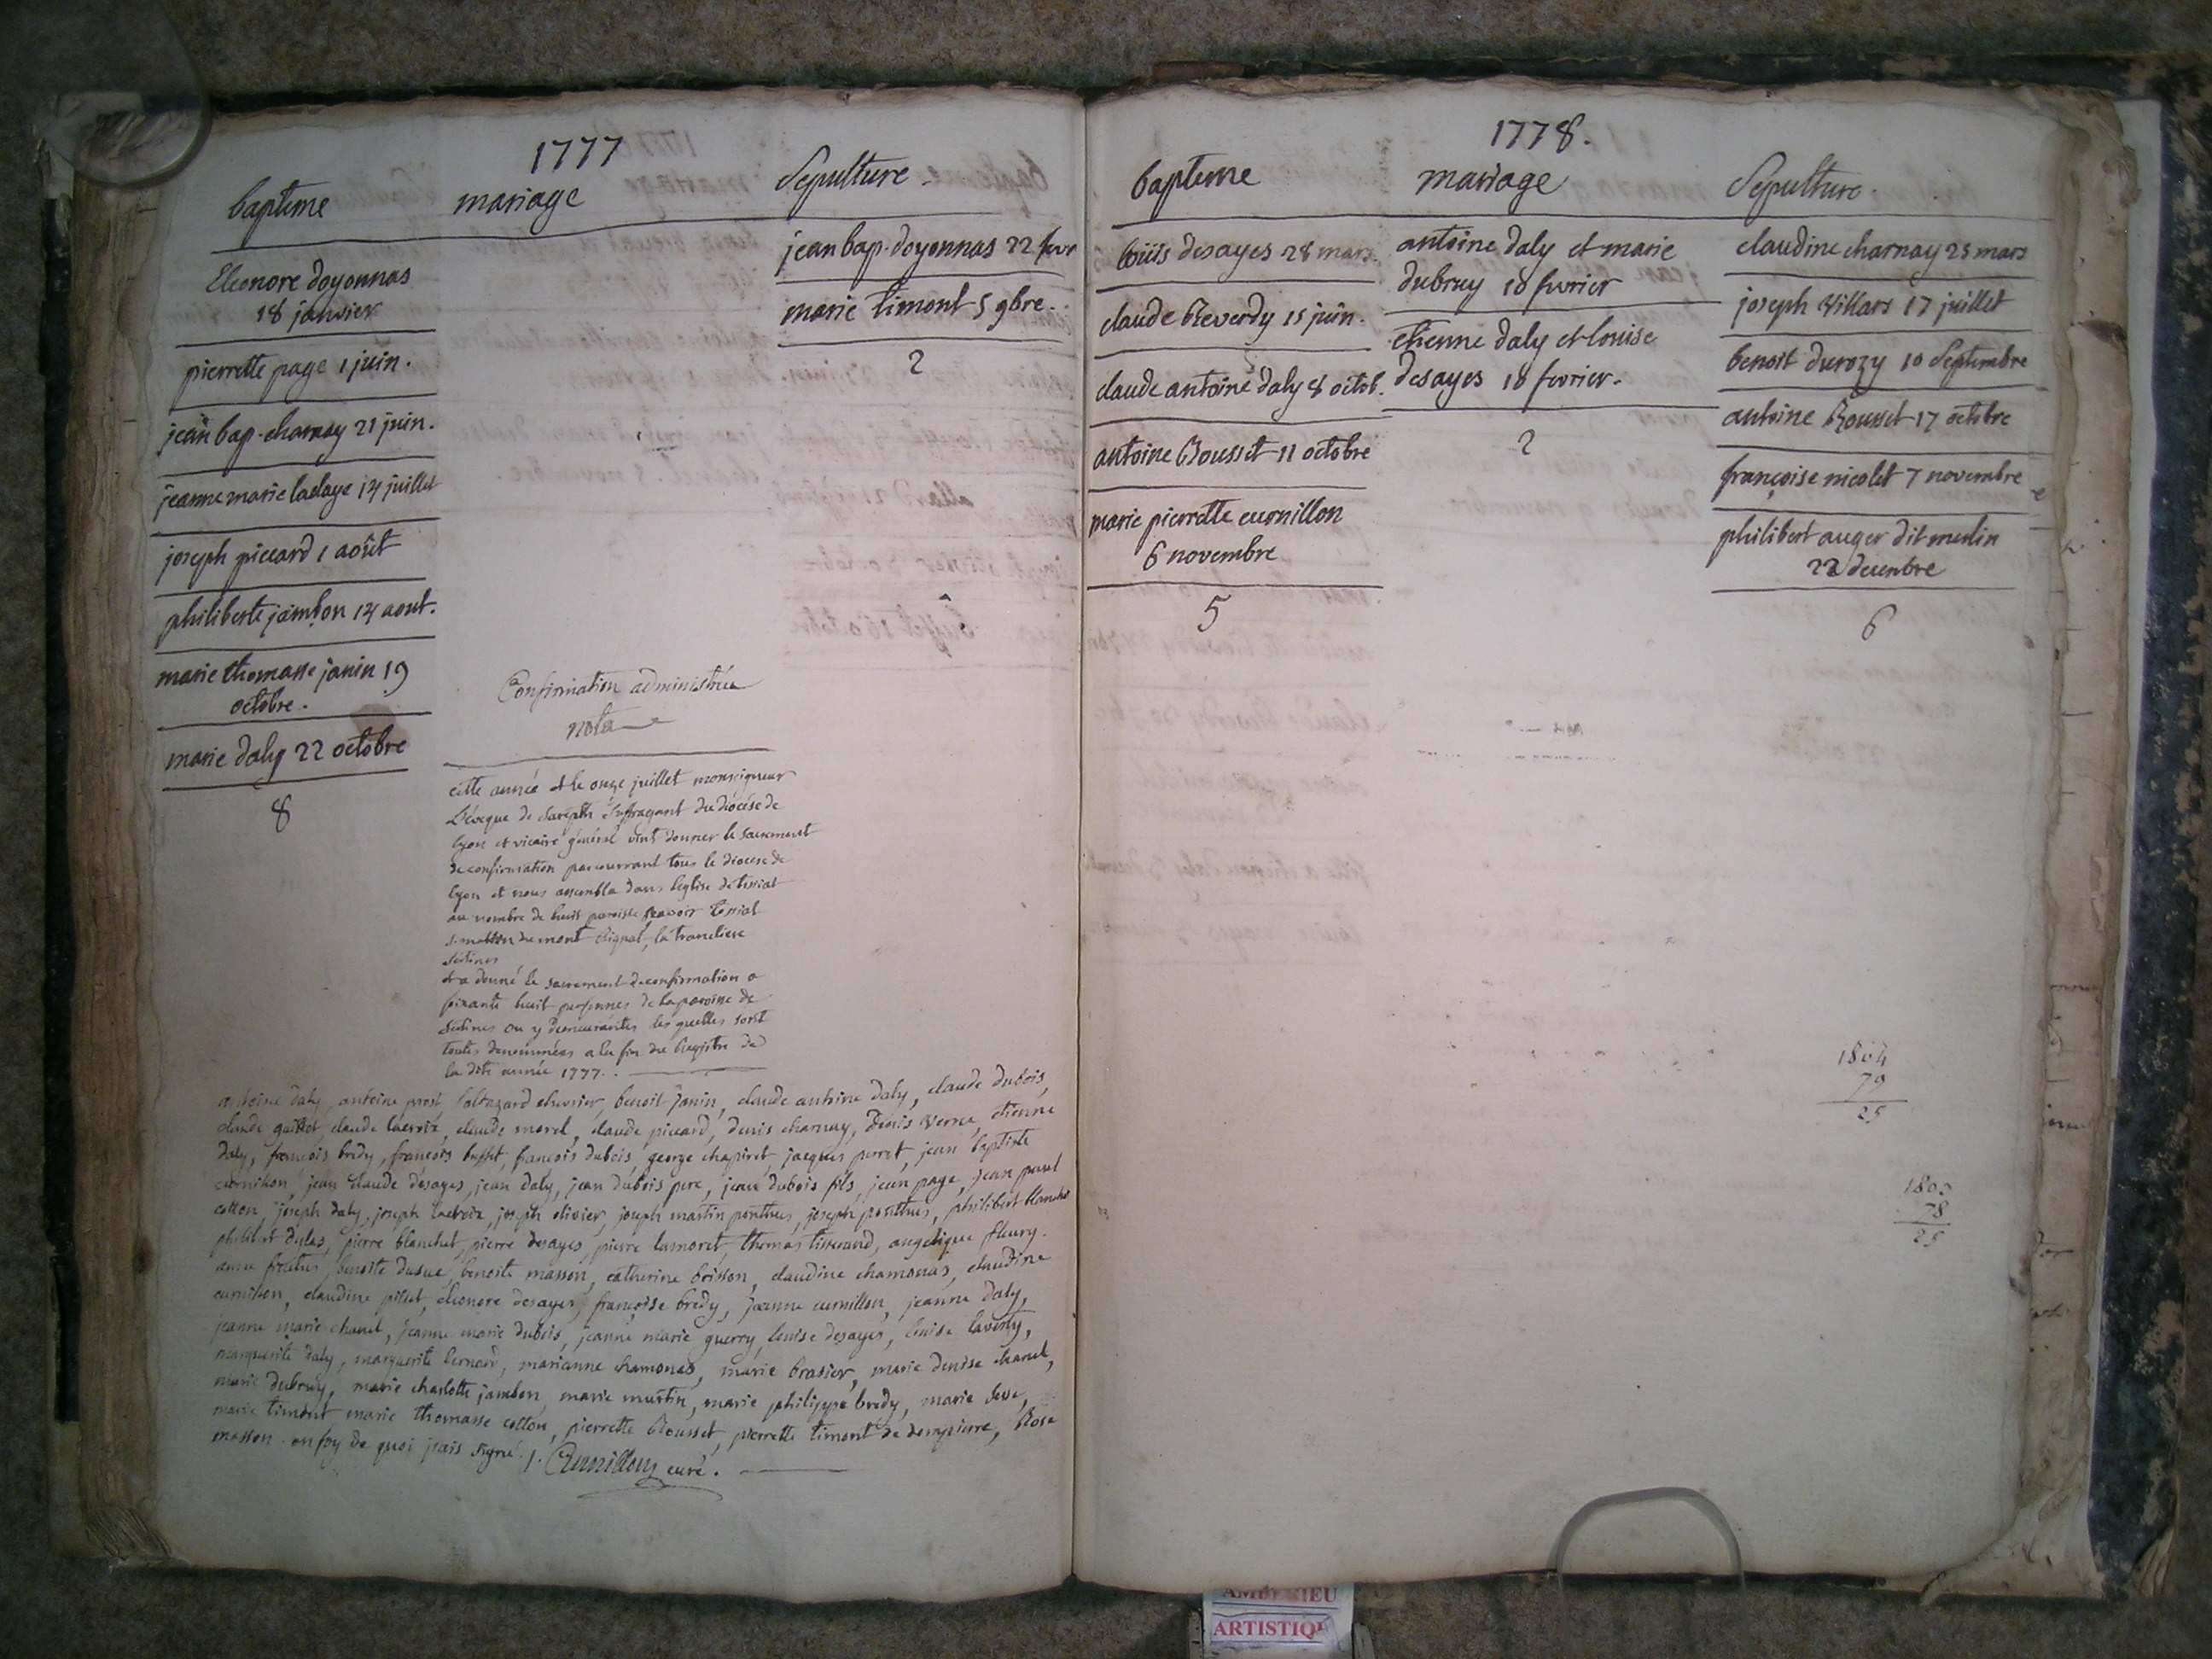 1777
bapteme
mariage
Sepulture
Eleonore doyonnas
18 janvier
pierrette page 1 juin.
jean bap. charnay 21 juin.
jeanne marie ladaye 14 juillet
joseph piccard 1 août
philiberte jambon 14 aout.
marie thomasse janin 19
octobre.
marie daly 22 octobre
8
jean bap. doyonnas 22 fevr
marie timont 5 9bre.
2
Confirmation administrée
nota
cette année et le onze juillet monseigneur
L'éveque de Sarepth suffragant du diocèse de
lyon et vicaire général vint donner le sacrement
de confirmation parcourrant tous le diocese de
lyon et nous assembla dans l'eglise de tossiat
au nombre de huit paroisse scavoir tossiat
mont Rignat, la trancliere
et a donné le sacrement de confirmation a
soixante huit personnes de la paroisse de
ou y demeurantes les quelles sont
toutes denommées a la fin du Registre de
la dite année 1777.
antoine daly, antoine prost, baltazard chevrier, benoit janin, claude antoine daly, claude dubois,
claude guillot, claude lacroix, claude morel, claude piccard, denis charnay, denis verne, etienne
daly, francois bredy, francois buffet, francois dubois, george chapiret, jacques perret, jean baptiste
curnillon, jean claude desayes, jean daly, jean dubois pere, jean dubois fils, jean page, jean paul
cotton, joseph daly, joseph lacroix, joseph olivier, joseph martin ponthus, joseph ponthus, philibert blanchet
philibert pierre blanchet, pierre desayes, pierre lamoret, thomas tisserand, angelique fleury.
anne benoite benoite masson, catherine brisson, claudine chamonas, claudine
curnillon, claudine eleonore desayes, françoise bredy, jeanne curnillon, jeanne daly,
jeanne marie chanel, jeanne marie dubois, jeanne marie guerry, louise desayes, louise
marguerite daly, marguerite bernard, marianne chamonas, marie brasier, marie denise chanel,
marie dubruy, marie charlotte jambon, marie martin, marie philippe bredy, marie
marie timont, marie thomasse cotton, pierrette Rousset, pierrette timont de dompierre, Rose
masson. en foy de quoi j'ais signé. j. Curnillon curé.
1778.
bapteme
mariage
Sepulture.
loüis desayes 28 mars.
claude Reverdy 15 juin.
claude antoine daly 8 octob.
antoine Rousset 11 octobre
marie pierrette curnillon
6 novembre
5
antoine daly et marie
dubruy 10 fevrier
etienne daly et louise
desayes 10 fevrier.
2
claudine charnay 25 mars
joseph villars 17 juillet
benoit durozy 10 Septembre
antoine Rousset 17 octobre
françoise nicolet 7 novembre
philibert auger dit merlin
22 decembre
6
1804
79
25
1803
78
25
ARTISTIQ